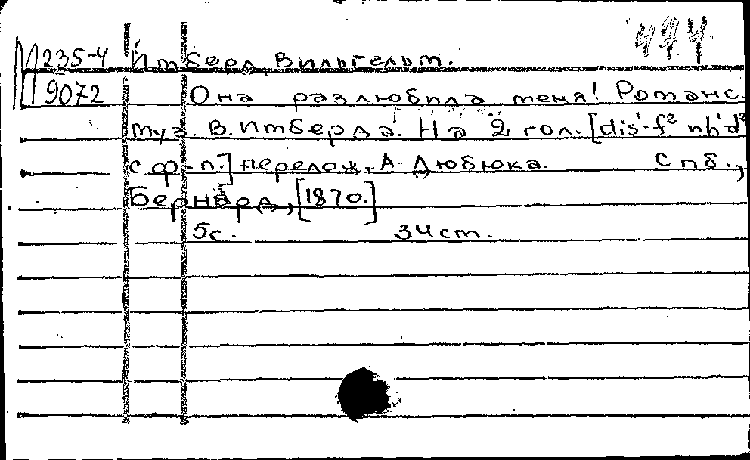 494
М 235-4 Имберд, Вильгельм.
9072 Она разлюбила меня! Романс.
Муз. В. Имберда. На 2 гол. [dis¹-f² и h¹-d²
с ф-п.] перелож. А. Дюбюка. Спб.,
Бернард, [1870.]
5с. 34см.